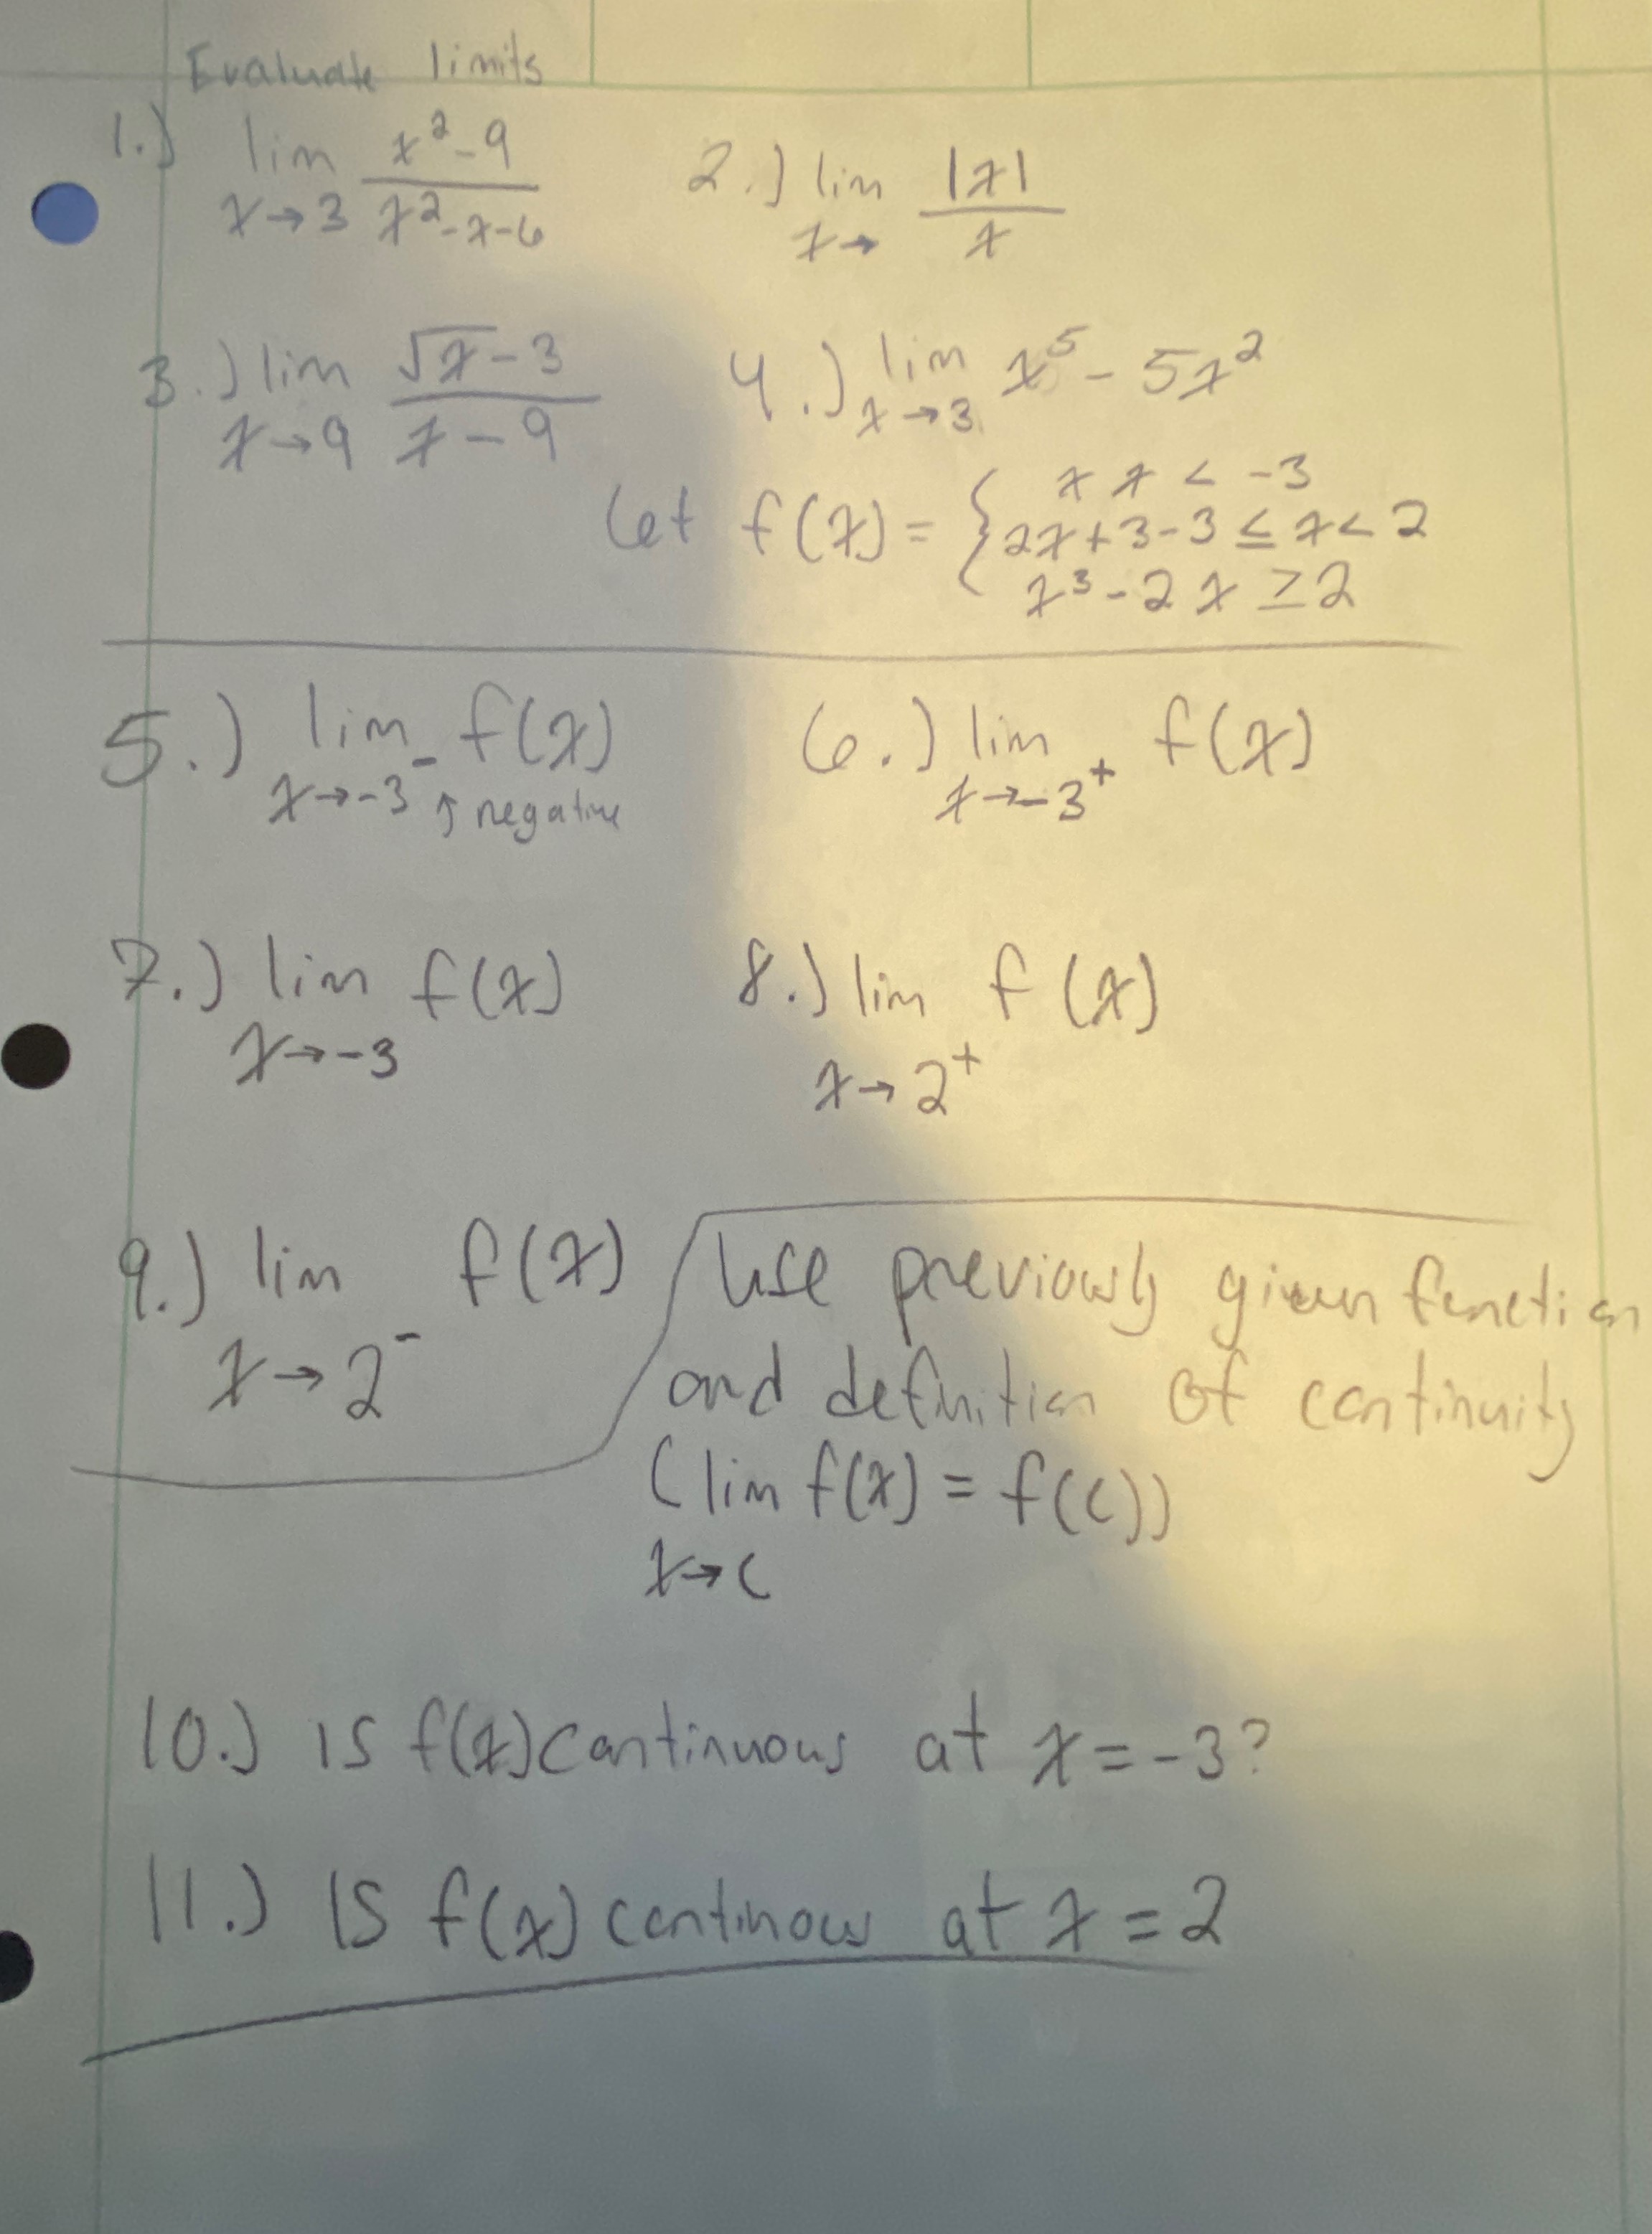 Evaluate limits
1.) lim x→3 x²-9 / x²-x-6
2.) lim x→ |x| / x
3.) lim x→9 √x-3 / x-9
4.) lim x→3 x⁵ - 5x²
Let f(x) = { x x < -3
2x+3 -3 ≤ x < 2
x³-2 x ≥ 2
5.) lim x→-3⁻ f(x) ↑ negative
6.) lim x→-3⁺ f(x)
7.) lim x→-3 f(x)
8.) lim x→2⁺ f(x)
9.) lim x→2⁻ f(x)
Use previously given function
and definition of continuity
(lim f(x) = f(c))
x→c
10.) is f(x) continuous at x = -3?
11.) Is f(x) continous at x = 2